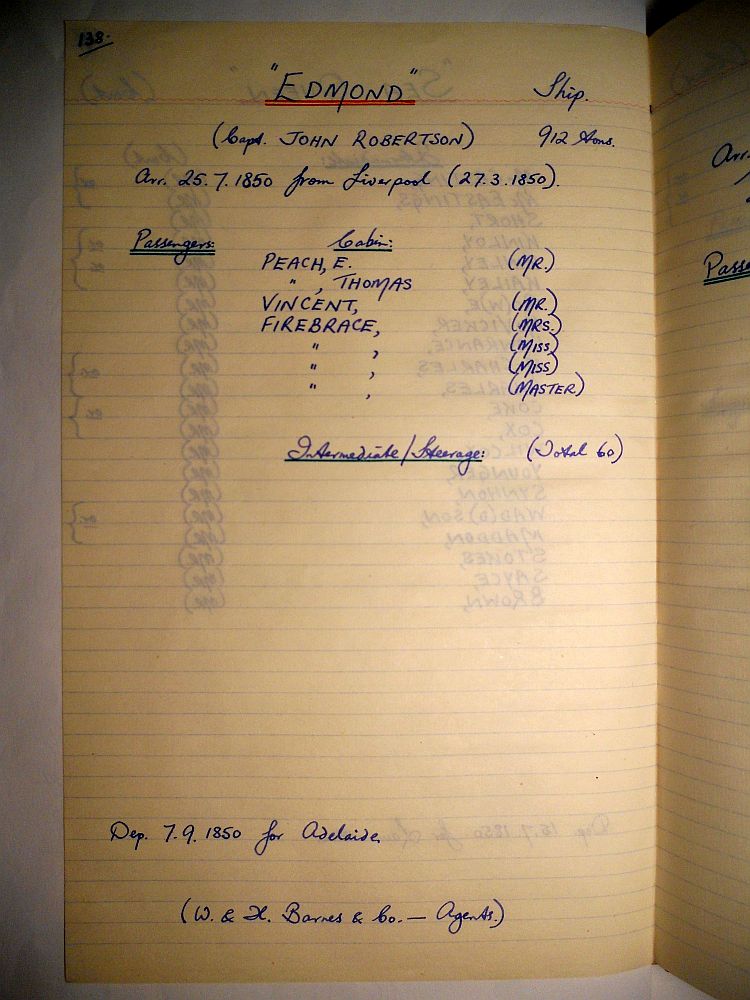 138.
"EDMOND" Ship.
(Capt. JOHN ROBERTSON) 912 tons.
Arr. 25.7.1850 from Liverpool (27.3.1850).
Passengers: Cabin:
PEACH, E. (MR.)
" , THOMAS
VINCENT, (MR.)
FIREBRACE, (MRS.)
" , (MISS)
" , (MISS)
" , (MASTER)
Intermediate/Steerage: (Total 60)
Dep. 7.9.1850 for Adelaide
(W. & H. Barnes & Co. — Agents.)
Arr.
Passe